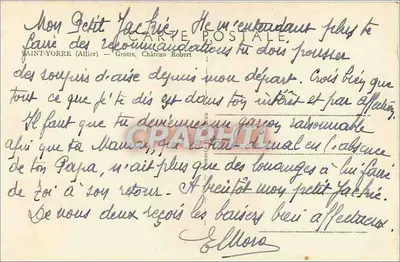 Mon Petit Jackie. Ne m'entendant plus te
CARTE POSTALE
faire des recommandations tu dois pousser
SAINT-YORRE (Allier) - Grotte, Château Robert
des soupirs d'aise depuis mon départ. Crois bien que
tout ce que je te dis est dans ton intérêt et par affection.
Il faut que tu deviennes un garçon raisonnable
CPAPHIL
afin que ta Maman, qui a tant de mal en l'absence
de ton Papa, n'ait plus que des louanges à lui faire
de toi à son retour. A bientôt mon petit Jackie.
De nous deux reçois les baisers bien affectueux.